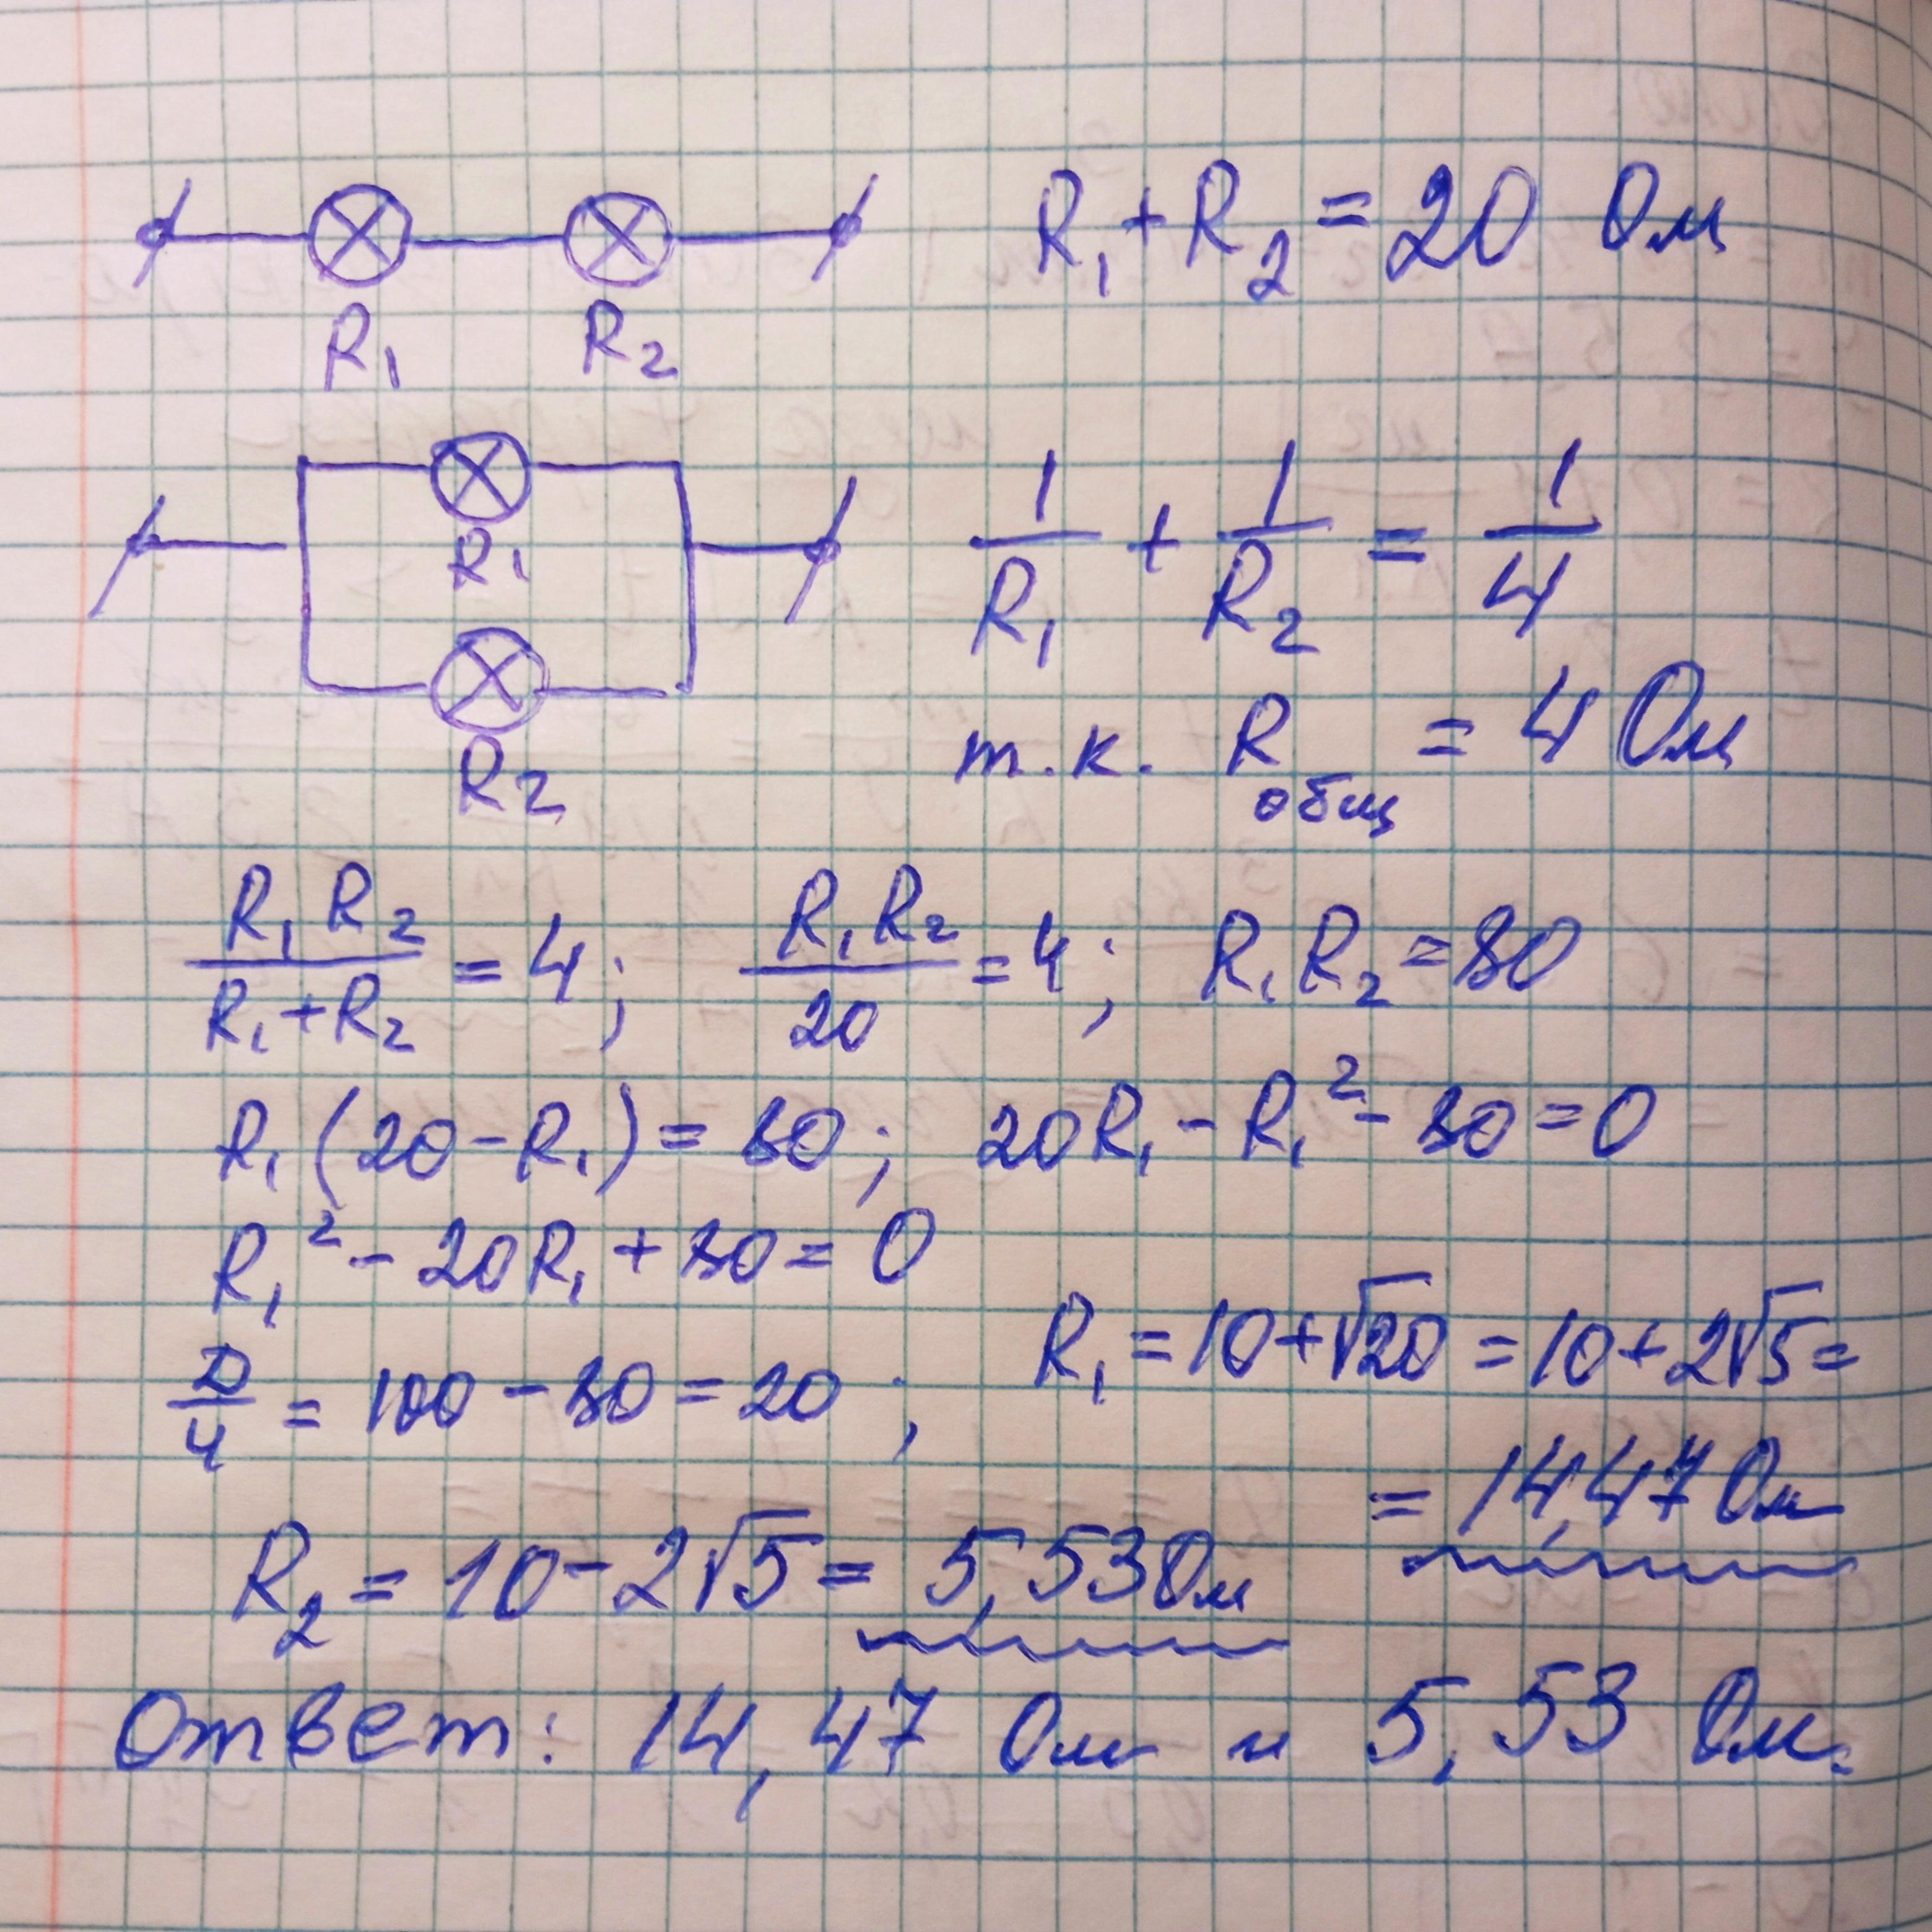 R₁ + R₂ = 20 Ом
R₁ R₂
1/R₁ + 1/R₂ = 1/4
R₁
т.к. Rобщ = 4 Ом
R₂
R₁R₂/(R₁+R₂) = 4; R₁R₂/20 = 4; R₁R₂ = 80
R₁(20-R₁) = 80; 20R₁ - R₁² - 80 = 0
R₁² - 20R₁ + 80 = 0
D/4 = 100 - 80 = 20; R₁ = 10 + √20 = 10 + 2√5 =
= 14,47 Ом
R₂ = 10 - 2√5 = 5,53 Ом
Ответ: 14,47 Ом и 5,53 Ом.